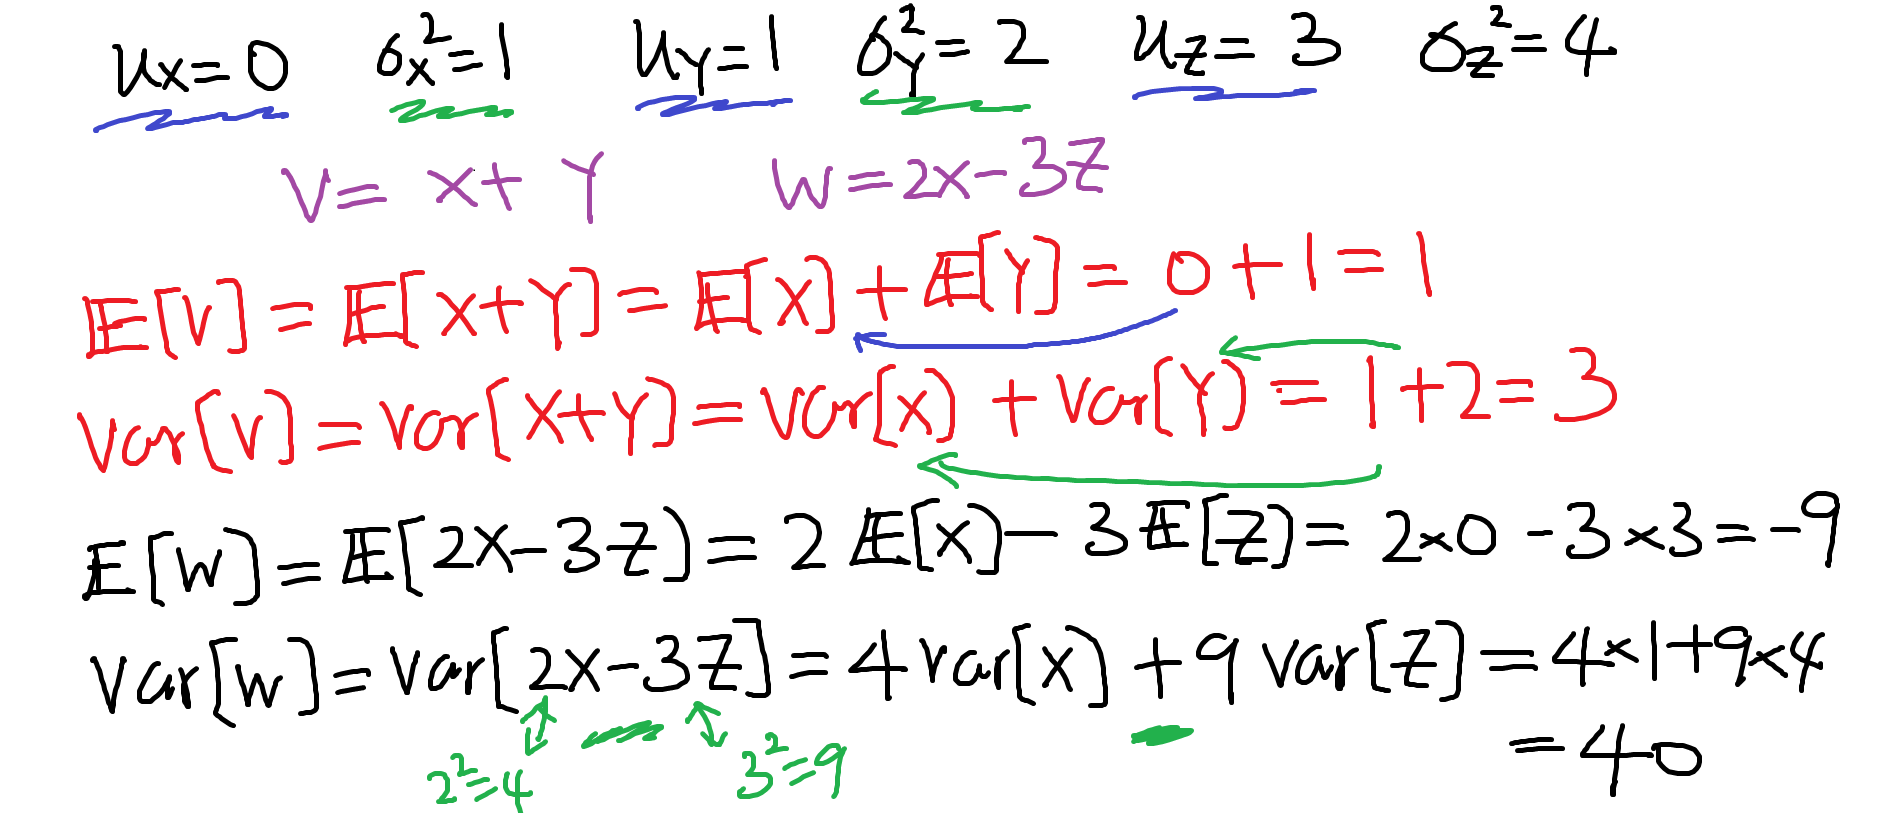 μx=0 σx²=1 μY=1 σY²=2 μZ=3 σZ²=4
V=X+Y W=2X-3Z
𝔼[V]=𝔼[X+Y]=𝔼[X]+𝔼[Y]=0+1=1
Var[V]=Var[X+Y]=Var[X]+Var[Y]=1+2=3
𝔼[W]=𝔼[2X-3Z]=2𝔼[X]-3𝔼[Z]=2×0-3×3=-9
Var[W]=Var[2X-3Z]=4Var[X]+9Var[Z]=4×1+9×4
=40
2²=4 3²=9